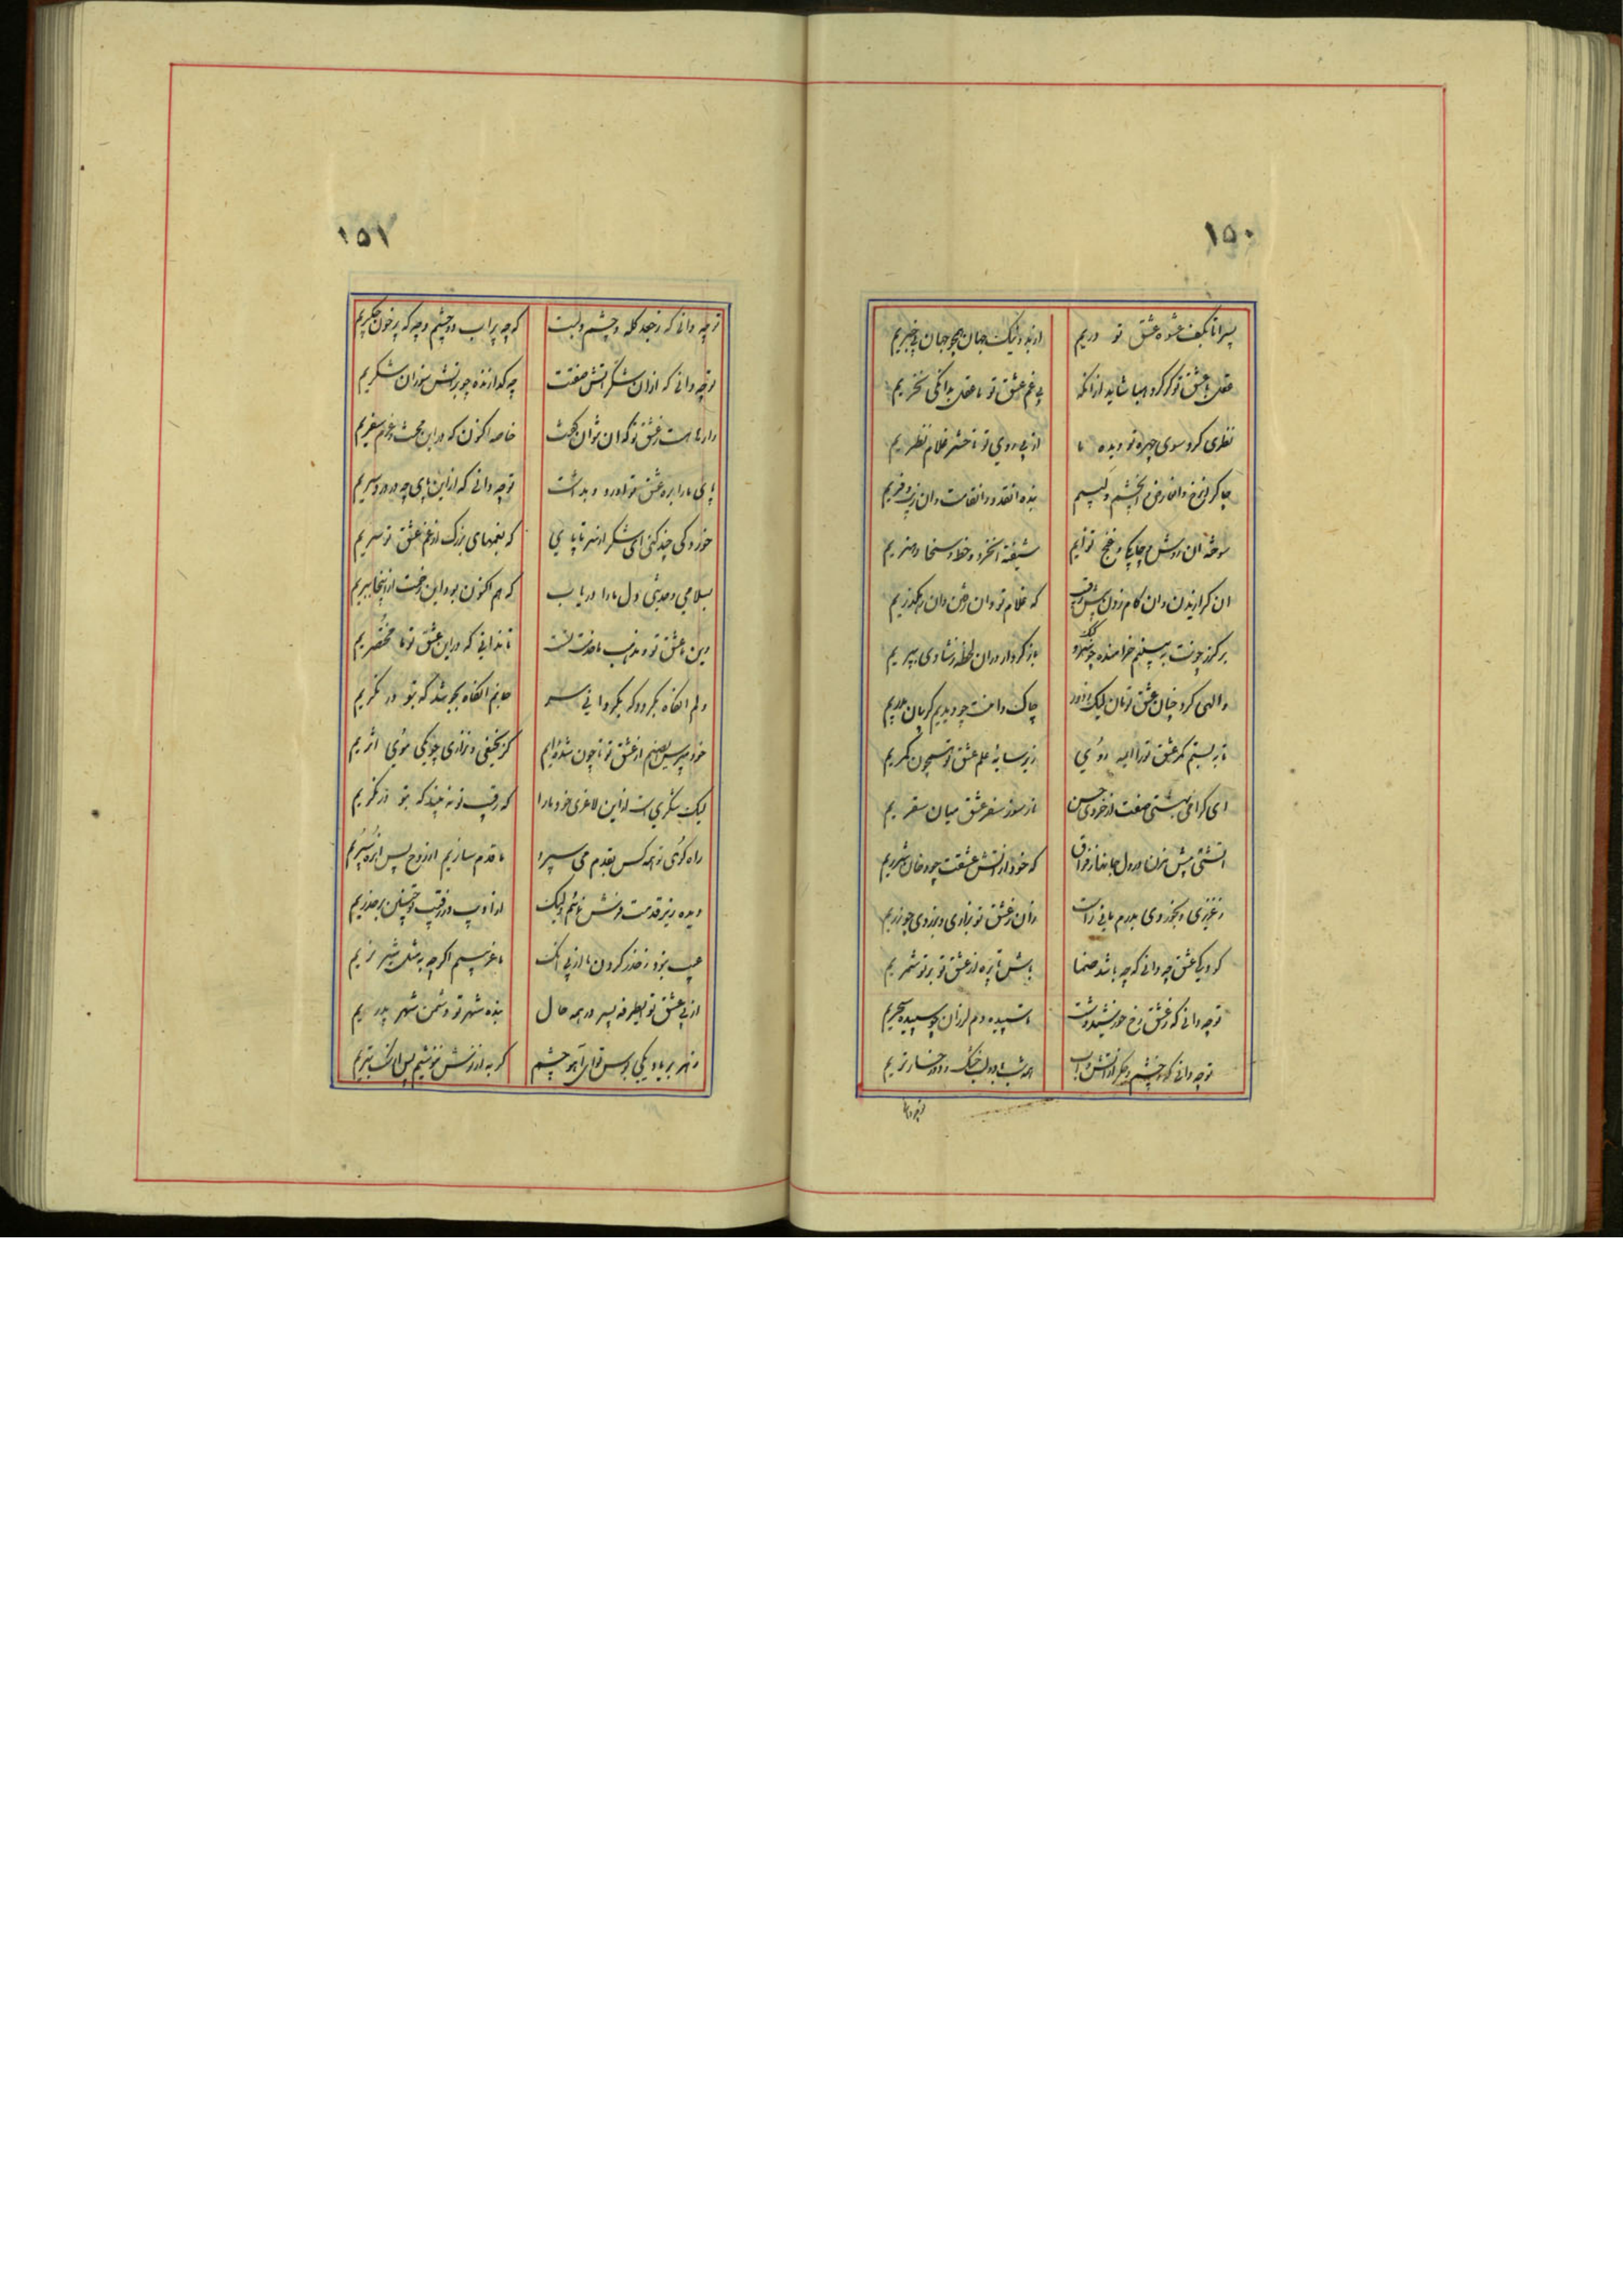 ۱۵۰
پسرا تا بکف عشوه عشق تو دریم از بد و نیک جهان همچو جهان بی خبریم
عقل با عشق تو کرد رها شاید از انکه بی غم عشق تو ما عقل بدانکی نخریم
نظری کرد سوی چهره تو دیده ما از پی روی تو تا حشر غلام نظریم
چاکر بنده انقد و انقامت وان زیب و فریم
سوخته ان روش و چابکی و غنج توایم شیفته انخرد و خط و سخا و هنریم
ان کرازیدن وان کام زدن که غلام تو وان رفتن وان رهکذریم
بر کذر چونت به بینیم خرامنده باز کردار دران لحظه ز شادی بپریم
والهی کرد چنان عشق تو مان لیک از دور چاک دامنت چو دیدیم کریبان بدریم
تا به بستیم کمر عشق تو را زیر سایه علم عشق تو همچون کمریم
ای کرامی بهشتی صفت از خوی حسن ما ز سوز سفر عشق میان سقریم
اتشی بیش مزن در دل ما از فراق که خود از اتش عشقت چو دخان شرریم
زان ز عشق تو بزاری و نزدی چو زریم
کودکی عشق چه دانی که چه باشد صنما باش تا پاره از عشق تو بر تو شمریم
تو چه دانی که ز عشق رخ خورشید وشت تا سپیده دم لرزان چو سپیده سحریم
تو چه دانی که ز چشم و جکر از اتش و اب همه شب با دو لب خشک و دو رخسار تریم
تو چه دانی
۱۵۱
تو چه دانی که ز جعد کله و چشم و لبت که چه پر اب دو چشم و چه که پر خون جکریم
تو چه دانی که ازان شکر اتش صفتت چه کدازنده چو بر اتش سوزان شکریم
رازها هست ز عشق تو که ان نتوان کفت خاصه اکنون که درین بحث و عزم سفریم
پای ما را بره عشق تو اورد و بداشت تو چه دانی که از این پای چه در درد سریم
خوردکی چند کنی ای شکر از سر تا پای که بغمهای بزرک از غم عشق تو سریم
بسلامی و حدیثی دل ما را دریاب که هم اکنون بود این رخت از اینجا ببریم
دین ما عشق تو و مذهب ما خدمت تست تا ندانی که در این عشق تو ما مختصریم
دلم انکاه بکردد که بکردانی سر جانم انکاه بجوشد که بتو در نکریم
خود نپرسی صنم از عشق تو ما چون شده ایم کز نحیفی و نزاری چو یکی موی اثریم
لیک شکری است از این لاغری خود ما را که رقیب تو نه بیند که بتو در نکریم
راه کوی تو همه کس بقدم می سپرد ما قدم سازیم از روح پس انره سپریم
دیده زیر قدمت فرش نمائیم ولیک از ادب وز رقیب تو چنین بر حذریم
عیب نبود ز حذر کردن ما از پی انک ما غریبیم اکرچه بمثل شیر نریم
از پی عشق تو ای طرفه پسر در همه حال بنده شهر تو و دشمن شهر پدریم
زهر بر یاد یکی بوس تو ای اهو چشم کر به از نوش ننوشیم پس از سک بتریم